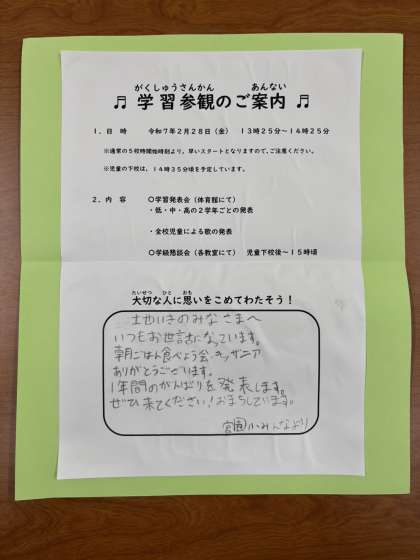 がくしゅうさんかん あんない
♬ 学習参観のご案内 ♬
1．日　時　　令和7年2月28日（金）　13時25分～14時25分
※通常の5校時開始時刻より、早いスタートとなりますので、ご注意ください。
※児童の下校は、14時35分頃を予定しています。
2．内　容　　〇学習発表会（体育館にて）
・低・中・高の2学年ごとの発表
・全校児童による歌の発表
〇学級懇談会（各教室にて）　児童下校後～15時頃
たいせつ ひと おも
大切な人に思いをこめてわたそう！
地いきのみなさまへ
いつもお世話になっています。
朝ごはん食べよう会
ありがとうございます。
1年間のがんばりを発表します。
ぜひ来てください！おまちしています。
宮園小みんなより